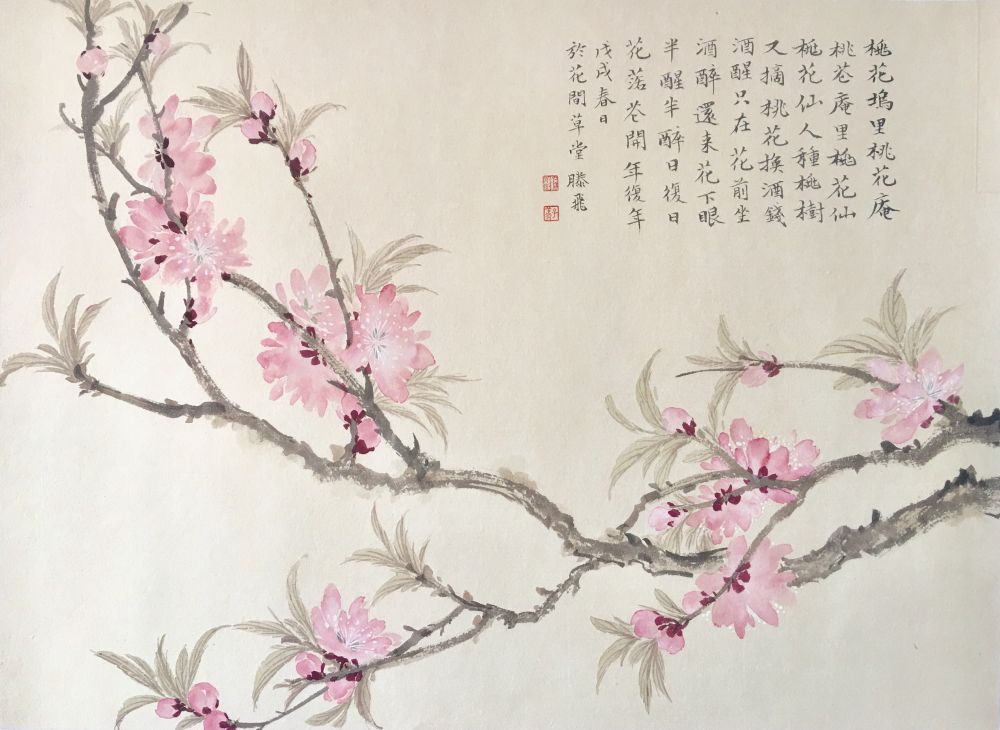 桃花塢里桃花庵
桃芲庵里桃花仙
桃花仙人種桃樹
又摘桃花換酒錢
酒醒只在花前坐
酒醉還来花下眠
半醒半醉日復日
花落芲開年復年
戊戌春日
於花間草堂 滕飛